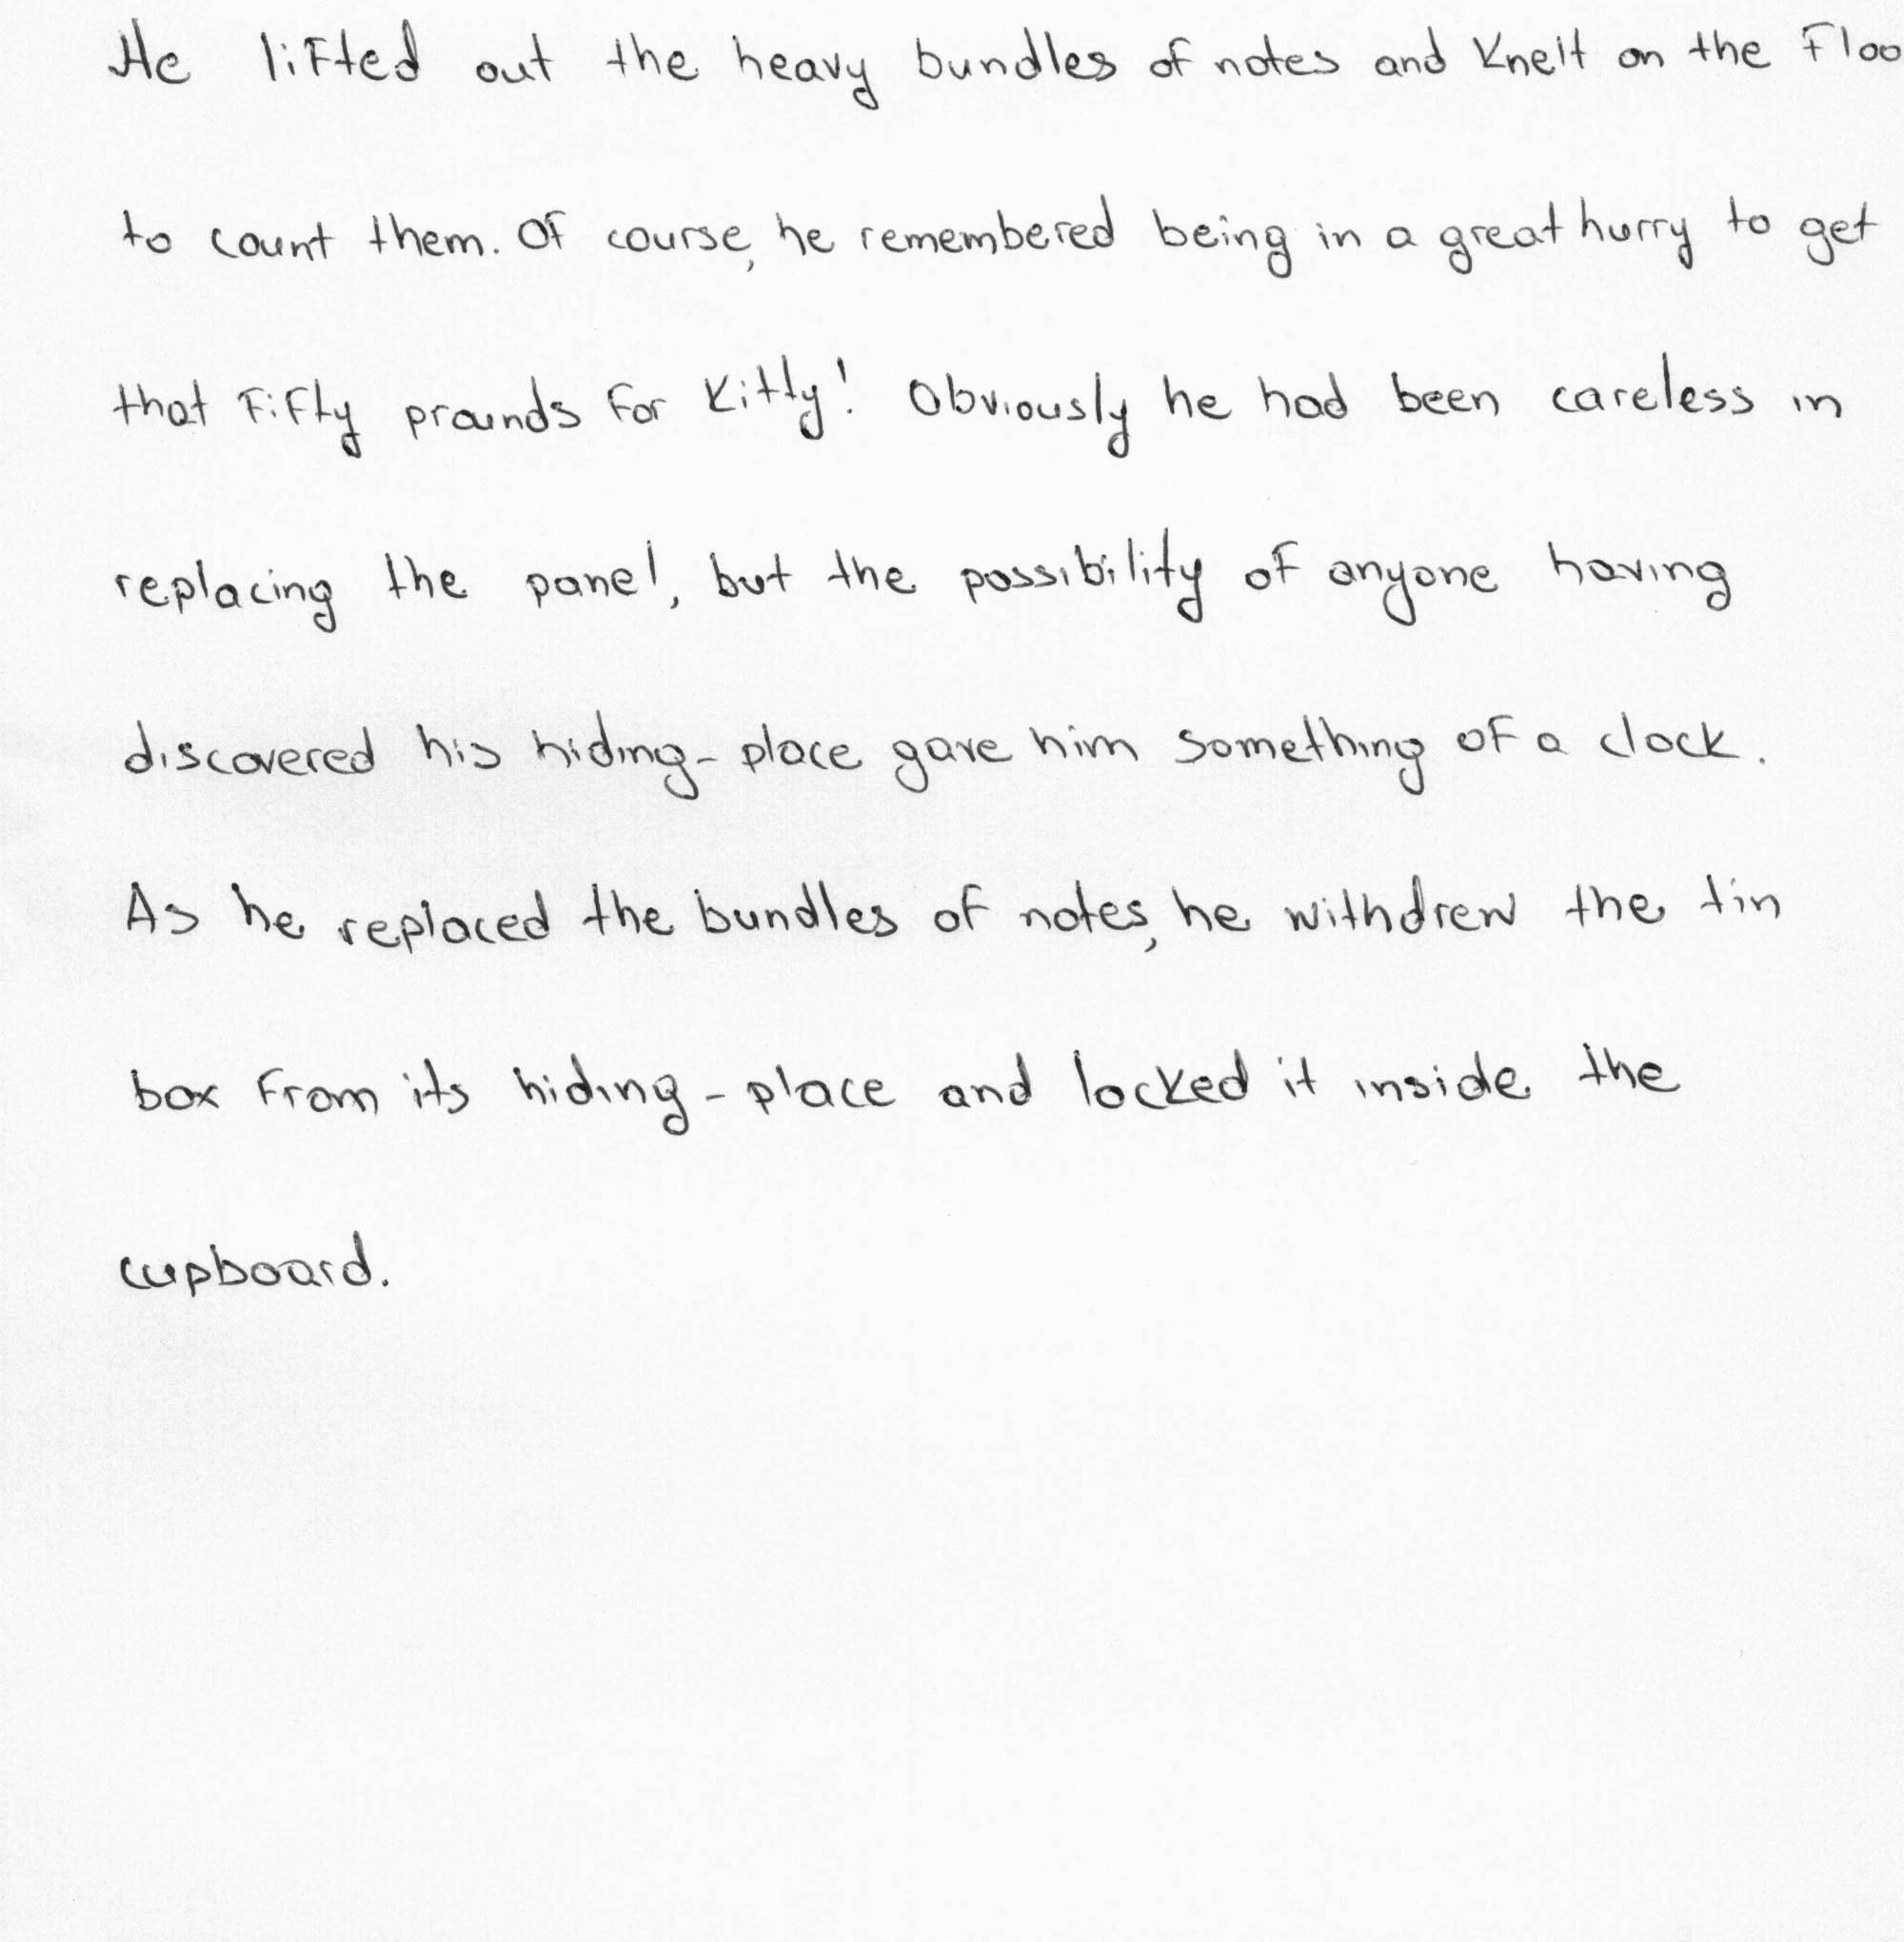 He lifted out the heavy bundles of notes and knelt on the floo
to count them. Of course, he remembered being in a great hurry to get
that fifty prounds for Kitty! Obviously he had been careless in
replacing the panel, but the possibility of anyone having
discovered his hiding-place gave him something of a clock.
As he replaced the bundles of notes, he withdrew the tin
box from its hiding-place and locked it inside the
cupboard.